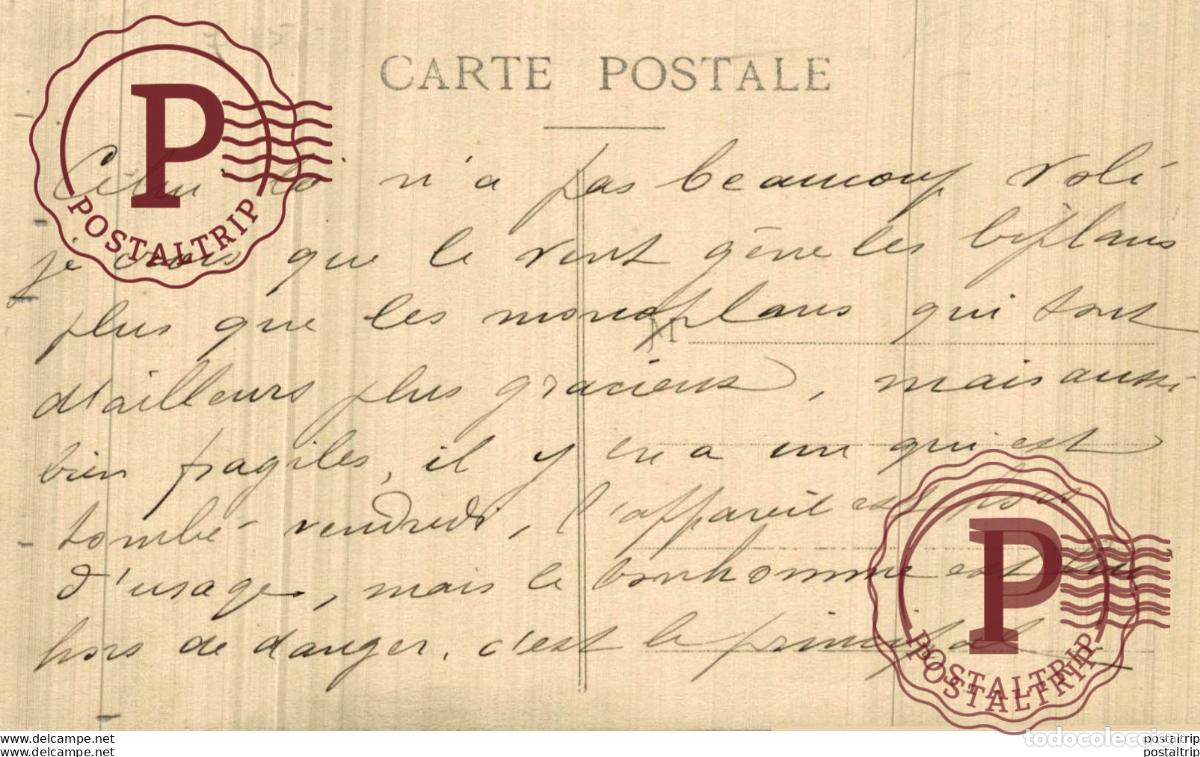 CARTE POSTALE
Celui là n'a pas beaucoup volé
je crois que le vent gêne les biplans
plus que les monoplans qui sont
d'ailleurs plus gracieux, mais aussi
bien fragiles, il y en a un qui est
tombé vendredi, l'appareil est hors
d'usage, mais le bonhomme est
hors de danger, c'est le principal
M
P
POSTALTRIP
P
POSTALTRIP
POSTALTRIP
todocoleccion
www.delcampe.net
www.delcampe.net
postaltrip
postaltrip